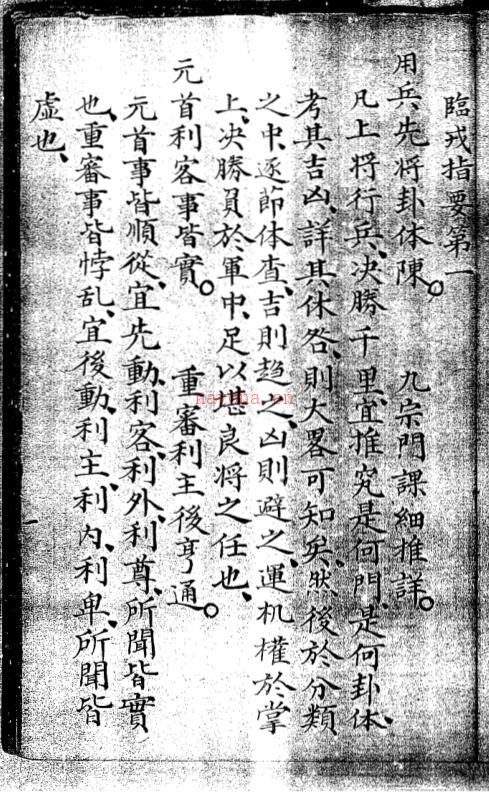 臨戎指要第一
用兵先將卦体陳。 九宗門課細推詳。
凡上將行兵、决勝千里、宜推究是何門、是何卦体、
考其吉凶、詳其休咎、則大畧可知矣、然後於分類
之中、逐節体查、吉則趋之、凶則避之、運机權於掌
上、决勝負於軍中、足以堪良將之任也、
元首利客事皆實。 重審利主後亨通。
元首事皆順從、宜先動、利客、利外、利尊、所聞皆實
也、重審事皆悖乱、宜後動、利主、利内、利卑、所聞皆
虚也、